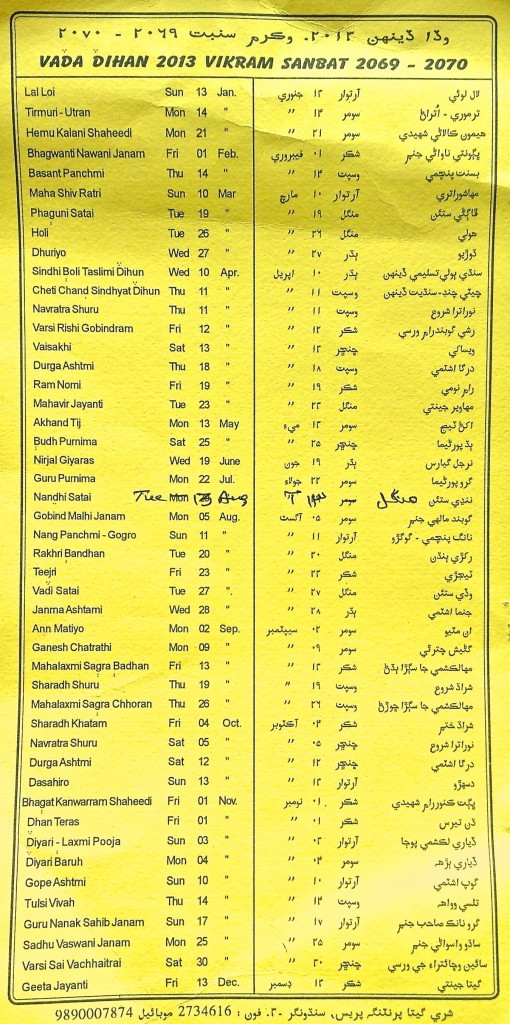 وڏا ڏينهن ٢٠١٣. وڪرم سنبت ٢٠٦٩ - ٢٠٧٠
VADA DIHAN 2013 VIKRAM SANBAT 2069 - 2070
Lal Loi Sun 13 Jan. لال لوئي آرتوار ١٣ جنوري
Tirmuri - Utran Mon 14 " ترموري - اُتراڻ سومر ١٤ "
Hemu Kalani Shaheedi Mon 21 " هيمون ڪالاڻي شهيدي سومر ٢١ "
Bhagwanti Nawani Janam Fri 01 Feb. ڀڳونتي ناواڻي جنم شڪر ٠١ فيبروري
Basant Panchmi Thu 14 " بسنت پنچمي وسپت ١٤ "
Maha Shiv Ratri Sun 10 Mar مهاشوراتري آرتوار ١٠ مارچ
Phaguni Satai Tue 19 " ڦاڳڻي ستئن منگل ١٩ "
Holi Tue 26 " هولي منگل ٢٦ "
Dhuriyo Wed 27 " ڌوڙيو ٻڌر ٢٧ "
Sindhi Boli Taslimi Dihun Wed 10 Apr. سنڌي ٻولي تسليمي ڏينهن ٻڌر ١٠ اپريل
Cheti Chand Sindhyat Dihun Thu 11 " چيٽي چنڊ-سنڌيت ڏينهن وسپت ١١ "
Navratra Shuru Thu 11 " نوراترا شروع وسپت ١١ "
Varsi Rishi Gobindram Fri 12 " رشي گوبندرام ورسي شڪر ١٢ "
Vaisakhi Sat 13 " ويساکي ڇنڇر ١٣ "
Durga Ashtmi Thu 18 " درگا اشٽمي وسپت ١٨ "
Ram Nomi Fri 19 " رام نومي شڪر ١٩ "
Mahavir Jayanti Tue 23 " مهاوير جينتي منگل ٢٣ "
Akhand Tij Mon 13 May اکڻ ٽيج سومر ١٣ مئي
Budh Purnima Sat 25 " ٻڌ پورڻيما ڇنڇر ٢٥ "
Nirjal Giyaras Wed 19 June نرجل گيارس ٻڌر ١٩ جون
Guru Purnima Mon 22 Jul. گرو پورڻيما سومر ٢٢ جولاءِ
Nandhi Satai Tue Mon 13 Aug ننڍي ستئن منگل سومر
Gobind Malhi Janam Mon 05 Aug. گوبند مالهي جنم سومر ٠٥ آگسٽ
Nang Panchmi - Gogro Sun 11 " نانگ پنچمي - گوگڙو آرتوار ١١ "
Rakhri Bandhan Tue 20 " رکڙي ٻنڌن منگل ٢٠ "
Teejri Fri 23 " ٽيجڙي شڪر ٢٣ "
Vadi Satai Tue 27 " وڏي ستئن منگل ٢٧ "
Janma Ashtami Wed 28 " جنما اشٽمي ٻڌر ٢٨ "
Ann Matiyo Mon 02 Sep. ان مٽيو سومر ٠٢ سيپٽمبر
Ganesh Chatrathi Mon 09 " گڻيش چترٿي سومر ٠٩ "
Mahalaxmi Sagra Badhan Fri 13 " مهالڪشمي جا سڳڙا ٻڌڻ شڪر ١٣ "
Sharadh Shuru Thu 19 " شراڌ شروع وسپت ١٩ "
Mahalaxmi Sagra Chhoran Thu 26 " مهالڪشمي جا سڳڙا ڇوڙڻ وسپت ٢٦ "
Sharadh Khatam Fri 04 Oct. شراڌ ختم شڪر ٠٤ آڪٽوبر
Navratra Shuru Sat 05 " نوراترا شروع ڇنڇر ٠٥ "
Durga Ashtmi Sat 12 " درگا اشٽمي ڇنڇر ١٢ "
Dasahiro Sun 13 " دسهڙو آرتوار ١٣ "
Bhagat Kanwarram Shaheedi Fri 01 Nov. ڀڳت ڪنوررام شهيدي شڪر ٠١ نومبر
Dhan Teras Fri 01 " ڌن تيرس شڪر ٠١ "
Diyari - Laxmi Pooja Sun 03 " ڏياري لڪشمي پوڄا آرتوار ٠٣ "
Diyari Baruh Mon 04 " ڏياري ٻڙهه سومر ٠٤ "
Gope Ashtmi Sun 10 " گوپ اشٽمي آرتوار ١٠ "
Tulsi Vivah Thu 14 " تلسي وواهه وسپت ١٤ "
Guru Nanak Sahib Janam Sun 17 " گرو نانڪ صاحب جنم آرتوار ١٧ "
Sadhu Vaswani Janam Mon 25 " ساڌو واسواڻي جنم سومر ٢٥ "
Varsi Sai Vachhaitrai Sat 30 " سائين وڇائتراءِ جي ورسي ڇنڇر ٣٠ "
Geeta Jayanti Fri 13 Dec. گيتا جينتي شڪر ١٣ ڊسمبر
شري گيتا پرنٽنگ پريس، سنڌونگر -٣. فون : 2734616 موبائيل 9890007874